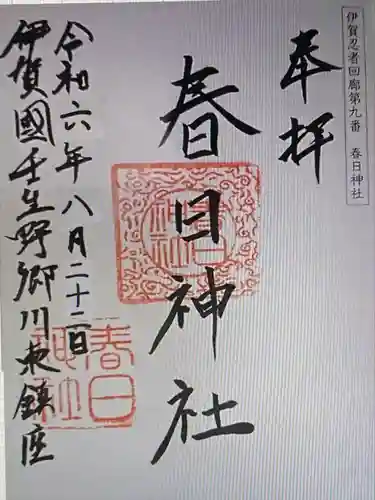 伊賀忍者回廊第九番 春日神社
奉拝
春日神社
令和六年八月二十二日
伊賀國壬生野郷川東鎮座
春日
神社